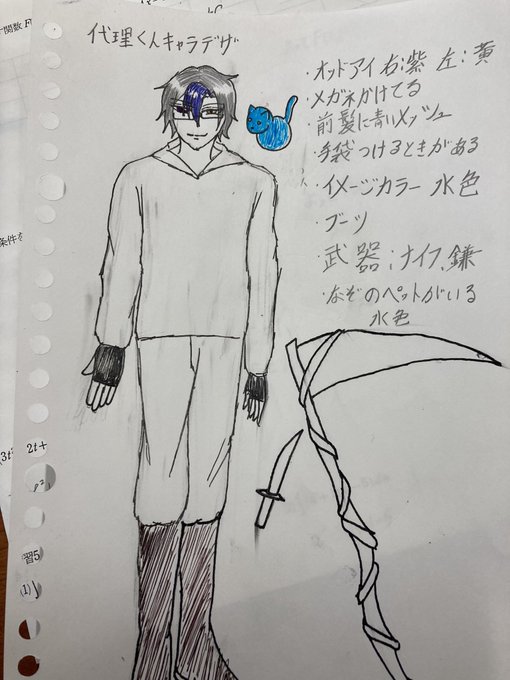 代理くんキャラデザ
・オッドアイ 右:紫 左:黄
・メガネかけてる
・前髪に青いメッシュ
・手袋つけるときがある
・イメージカラー 水色
・ブーツ
・武器:ナイフ、鎌
・なぞのペットがいる
水色
関数
条件を
2t+
(3t
習5
(1)